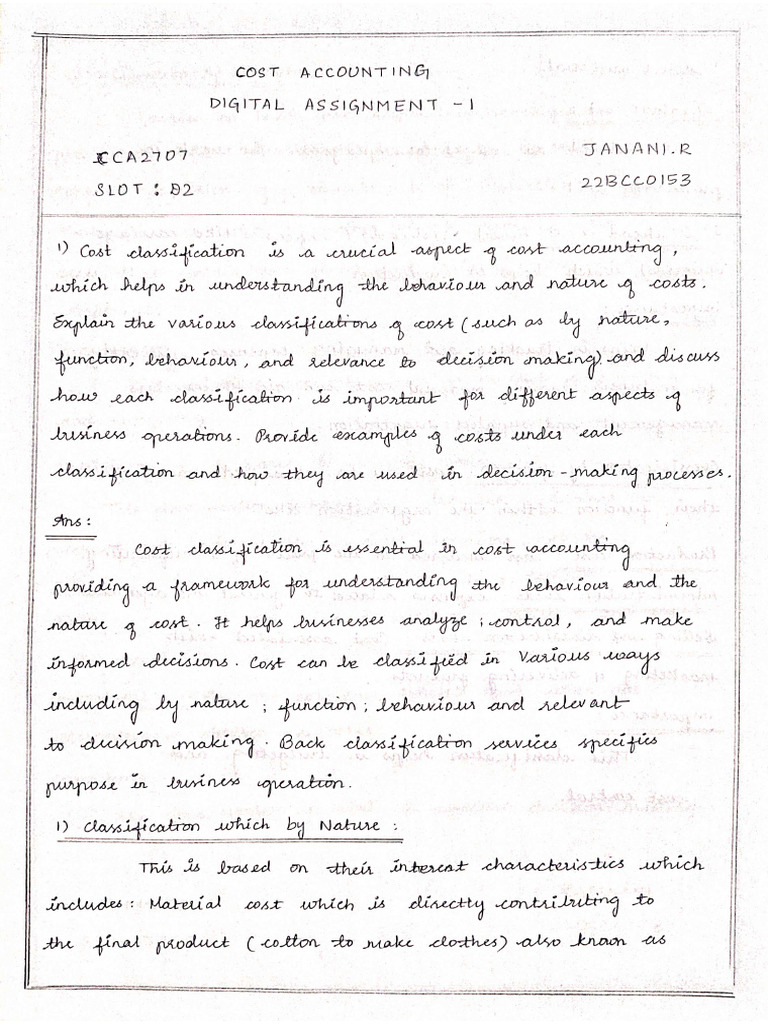 COST ACCOUNTING
DIGITAL ASSIGNMENT - 1
CCA2707
JANANI.R
SLOT : D2
22BCC0153
1) Cost classification is a crucial aspect of cost accounting,
which helps in understanding the behaviour and nature of costs.
Explain the various classifications of cost (such as by nature,
function, behaviour, and relevance to decision making) and discuss
how each classification is important for different aspects of
business operations. Provide examples of costs under each
classification and how they are used in decision-making processes.
Ans :
Cost classification is essential in cost accounting
providing a framework for understanding the behaviour and the
nature of cost. It helps businesses analyze ; control, and make
informed decisions. Cost can be classified in Various ways
including by nature ; function ; behaviour and relevant
to decision making. Back classification services specifics
purpose in business operation.
1) Classification which by Nature :
This is based on their interent characteristics which
includes : Material cost which is directly contributing to
the final product (cotton to make clothes) also known as